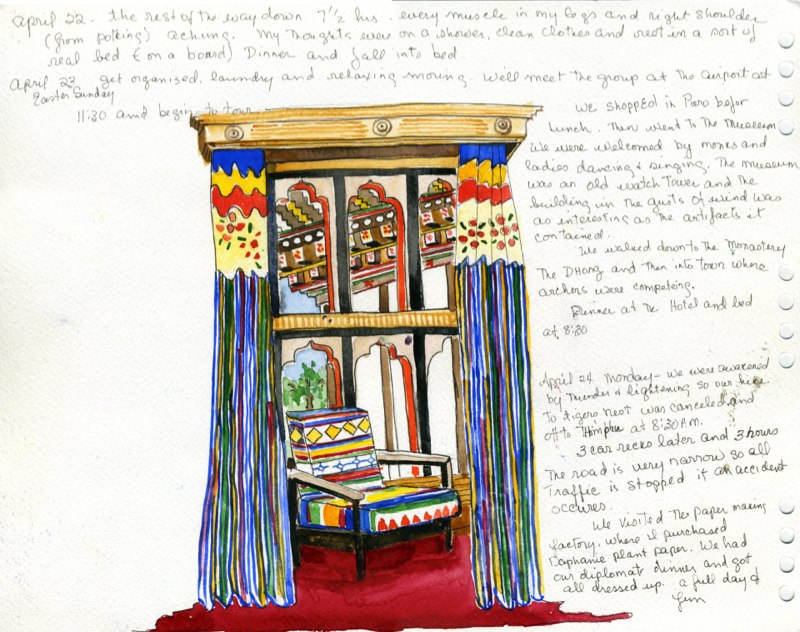 april 22. the rest of the way down 7 1/2 hrs. every muscle in my legs and right shoulder
(from polking) aching. My thoughts were on a shower, clean clothes and rest in a sort of
real bed (on a board) Dinner and fall into bed
April 23 get organized, laundry and relaxing morning. We'll meet the group at the airport at
Easter Sunday
11:30 and begin to tour
We shopped in Paro befor
lunch. Then went to the museum
We were welcomed by monks and
ladies dancing & singing. The museum
was an old watch tower and the
building in the of wind was
as interesting as the artifacts it
contained.
We walked down to the Monastery
The DHong and then into town where
archers were competing.
Dinner at the Hotel and bed
at 8:30
April 24 Monday - we were awakened
by thunder & lightening so our hike
to tigers nest was canceled and
off to Thimphu at 8:30 AM.
3 car recks later and 3 hours
The road is very narrow so all
traffic is stopped if an accident
occures.
We visited the paper making
factory, where I purchased
Daphanie plant paper. We had
our diplomat dinner and got
all dressed up. a full day of
fun